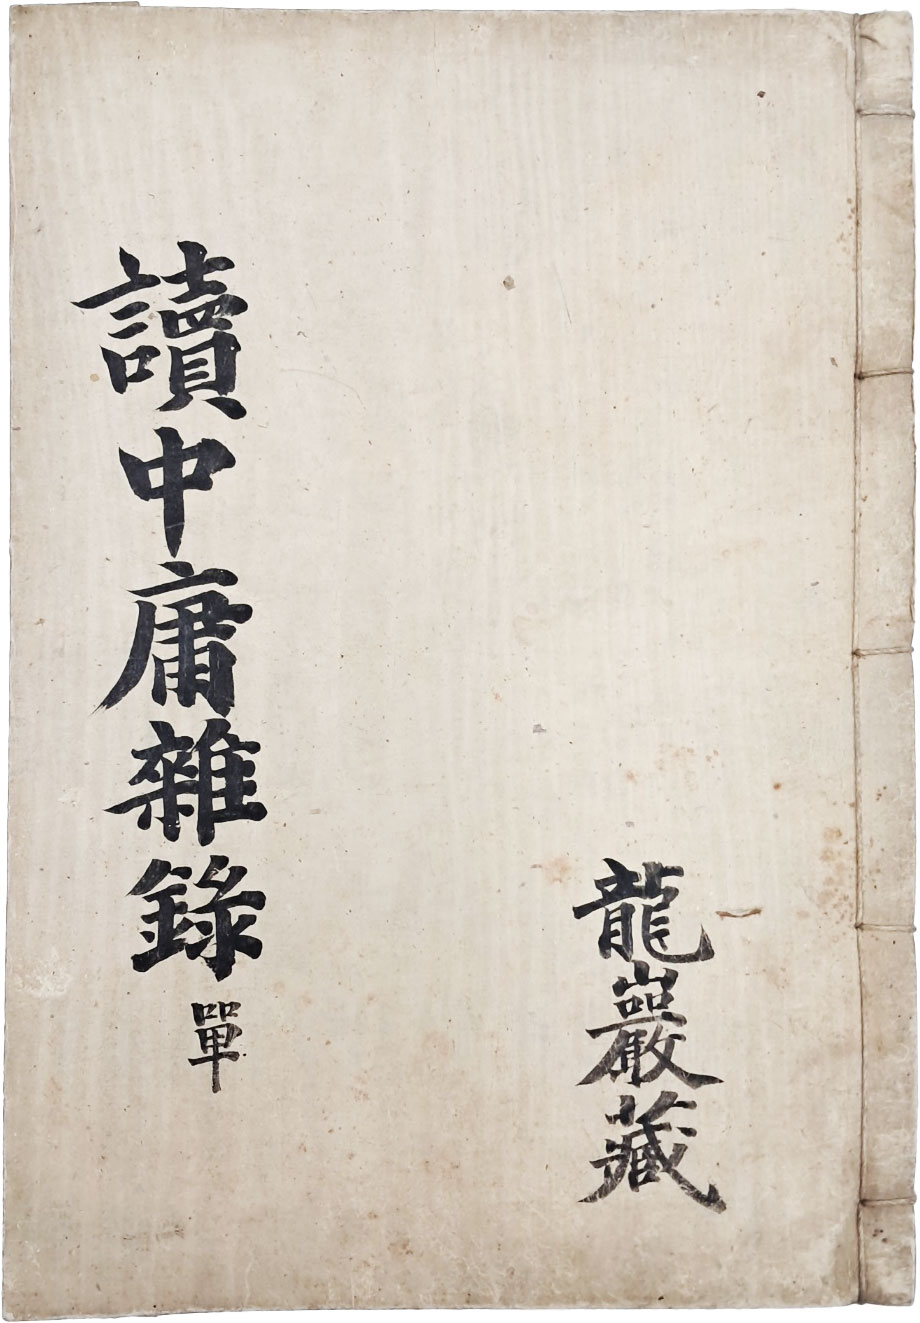 龍巖藏
讀中庸雜錄 單